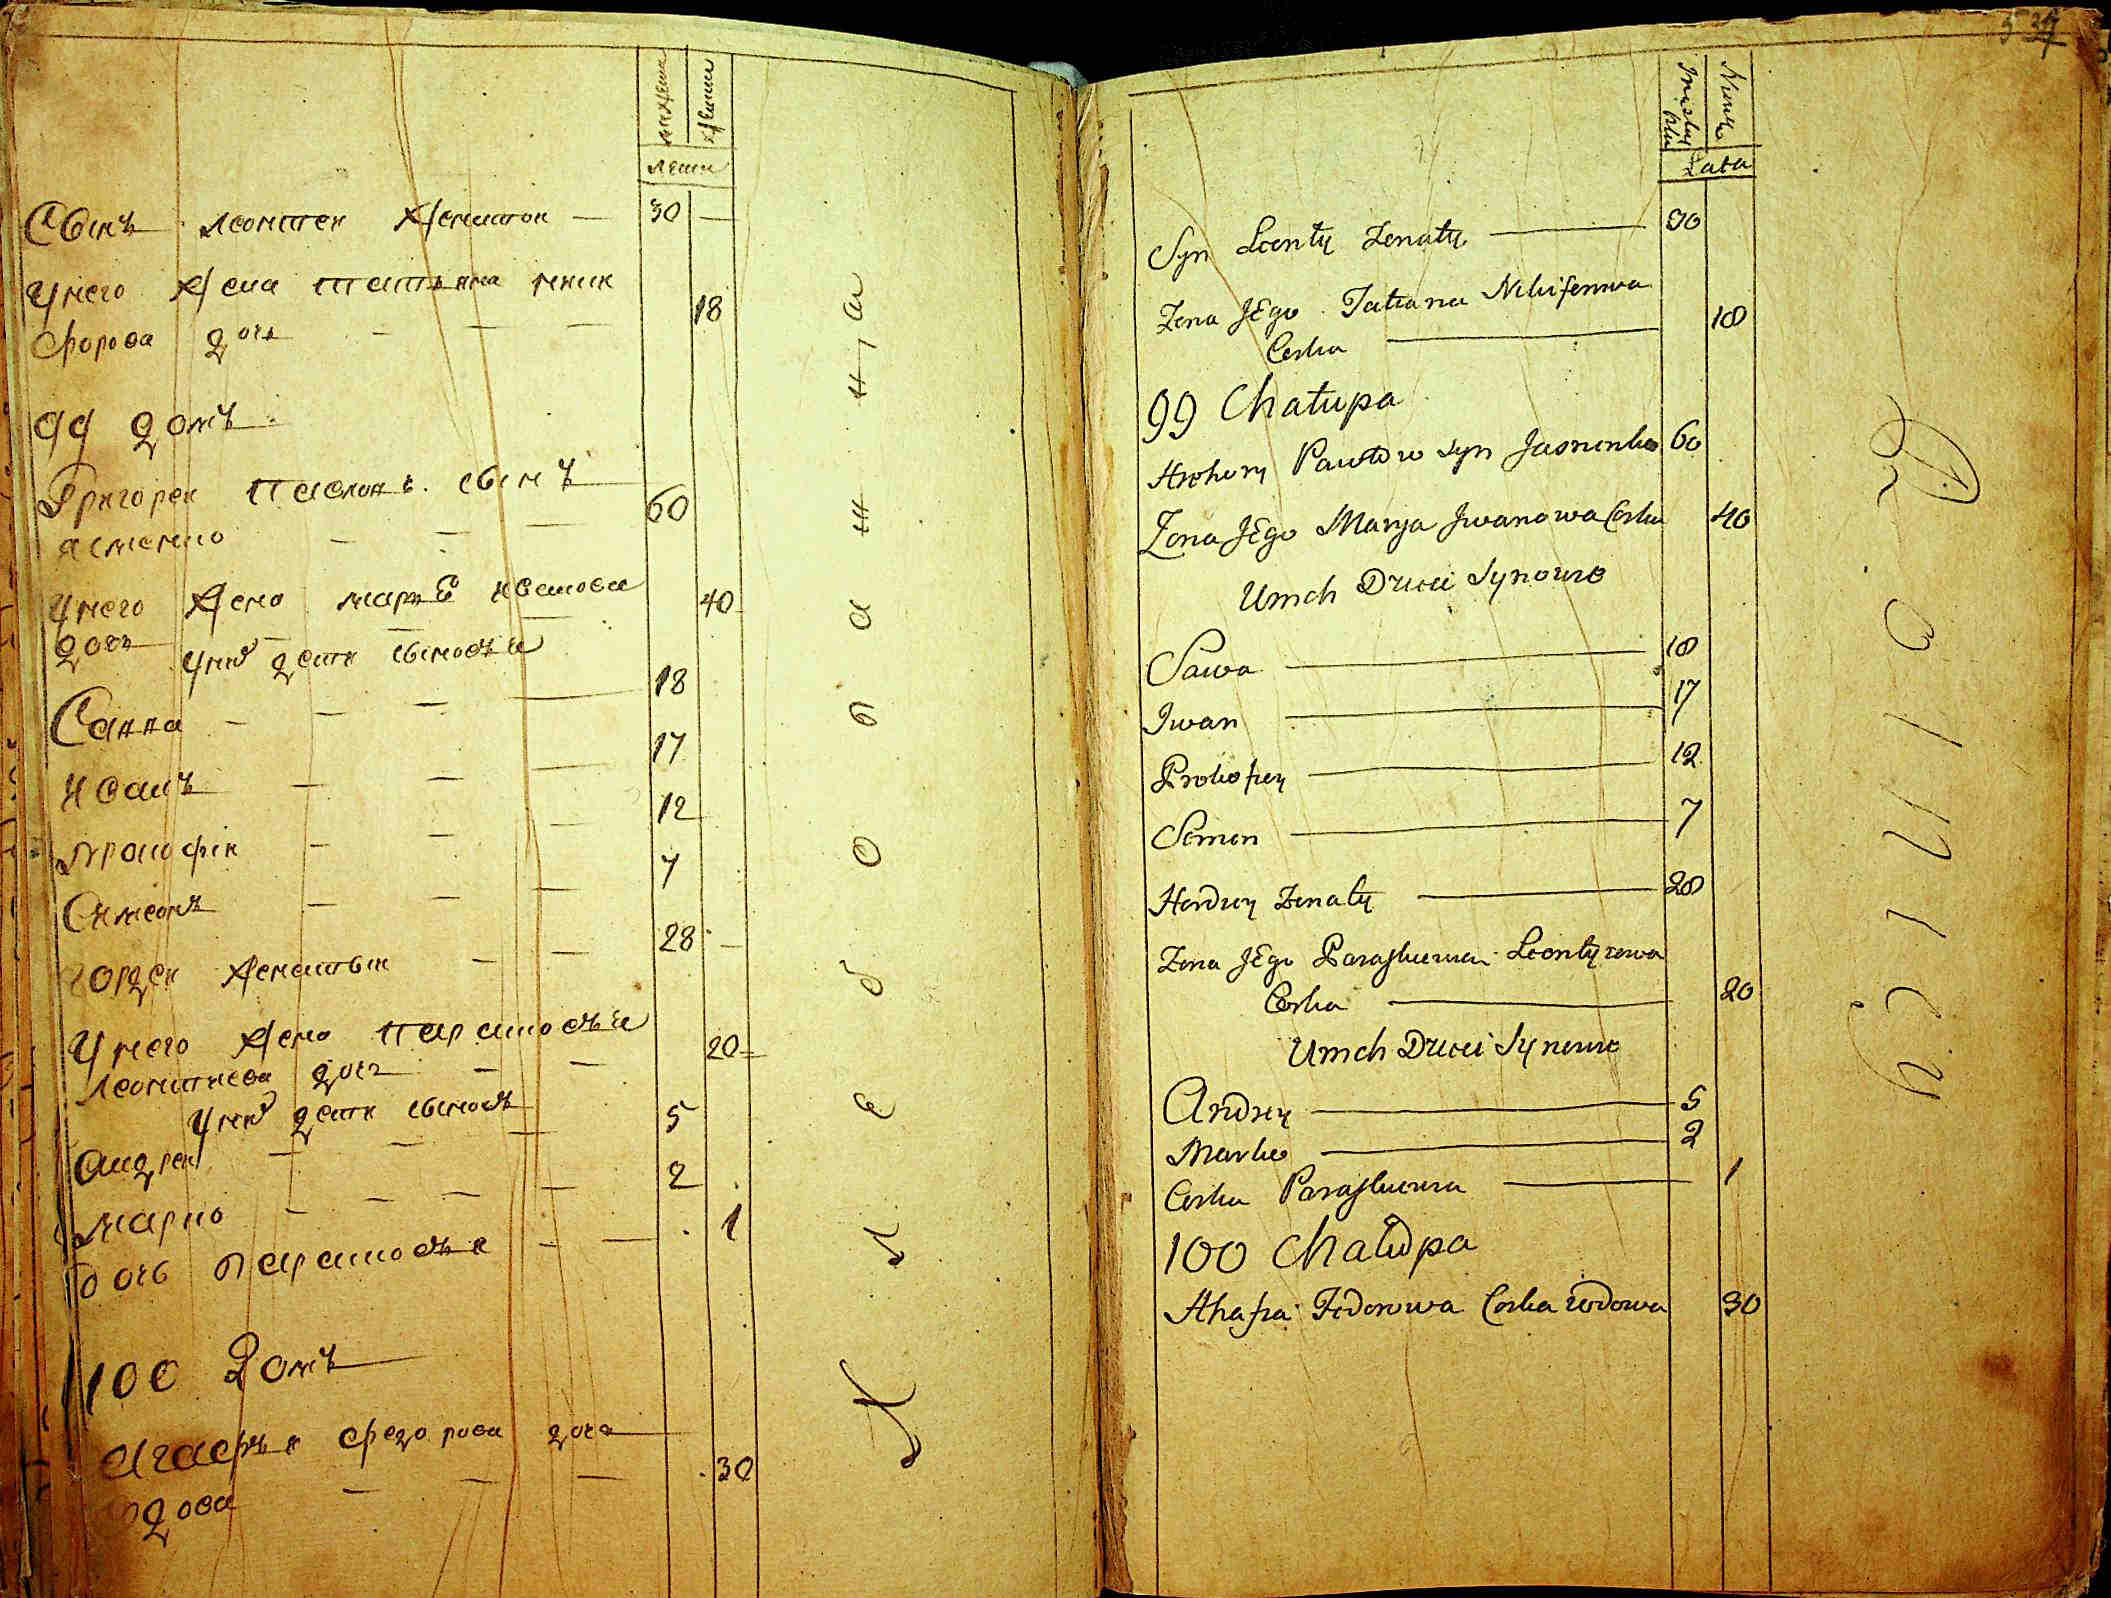 мужеска
женска
лета
Сынъ леонтеи женатои — 30 —
Унего жена татьяна мики
форова дочь — — — 18
99 домъ
Григореи павловъ сынъ
ясненко — — — 60
Унего жена маря иванова
дочь — — — 40
Уних дети сыновья
Савва — — — 18
иванъ — — — 17
прокофеи — — — 12
Симеонъ — — — 7
гордеи женатыи — — 28 —
Унего жена парасковья
леонтиева дочь — — 20
Уних дети сыновья
андреи — — — 5
марко — — — 2
дочь парасковья — — 1
100 домъ
агафья федорова дочь
вдова — — — 30
Męsky
Płci
Niewi
Lata
Syn Leonty Zenaty — 30
Zena Jego Tatiana Nikiforowa
Corka — 18
99 Chałupa
Hrehory Pawłow syn Jasnenko 60
Zona Jego Marya Jwanowa Corka 40
Unich Dzieci Synowie
Sawa — 18
Jwan — 17
Prokofiey — 12
Semen — 7
Hordiey Zenaty — 28
Zena Jego Paraskiewia Leontyiowa
Corka — 20
Unich Dzieci Synowie
Andrey — 5
Marko — 2
Corka Paraskiewia — 1
100 Chałupa
Ahafia Fedorowa Corka wdowa 30